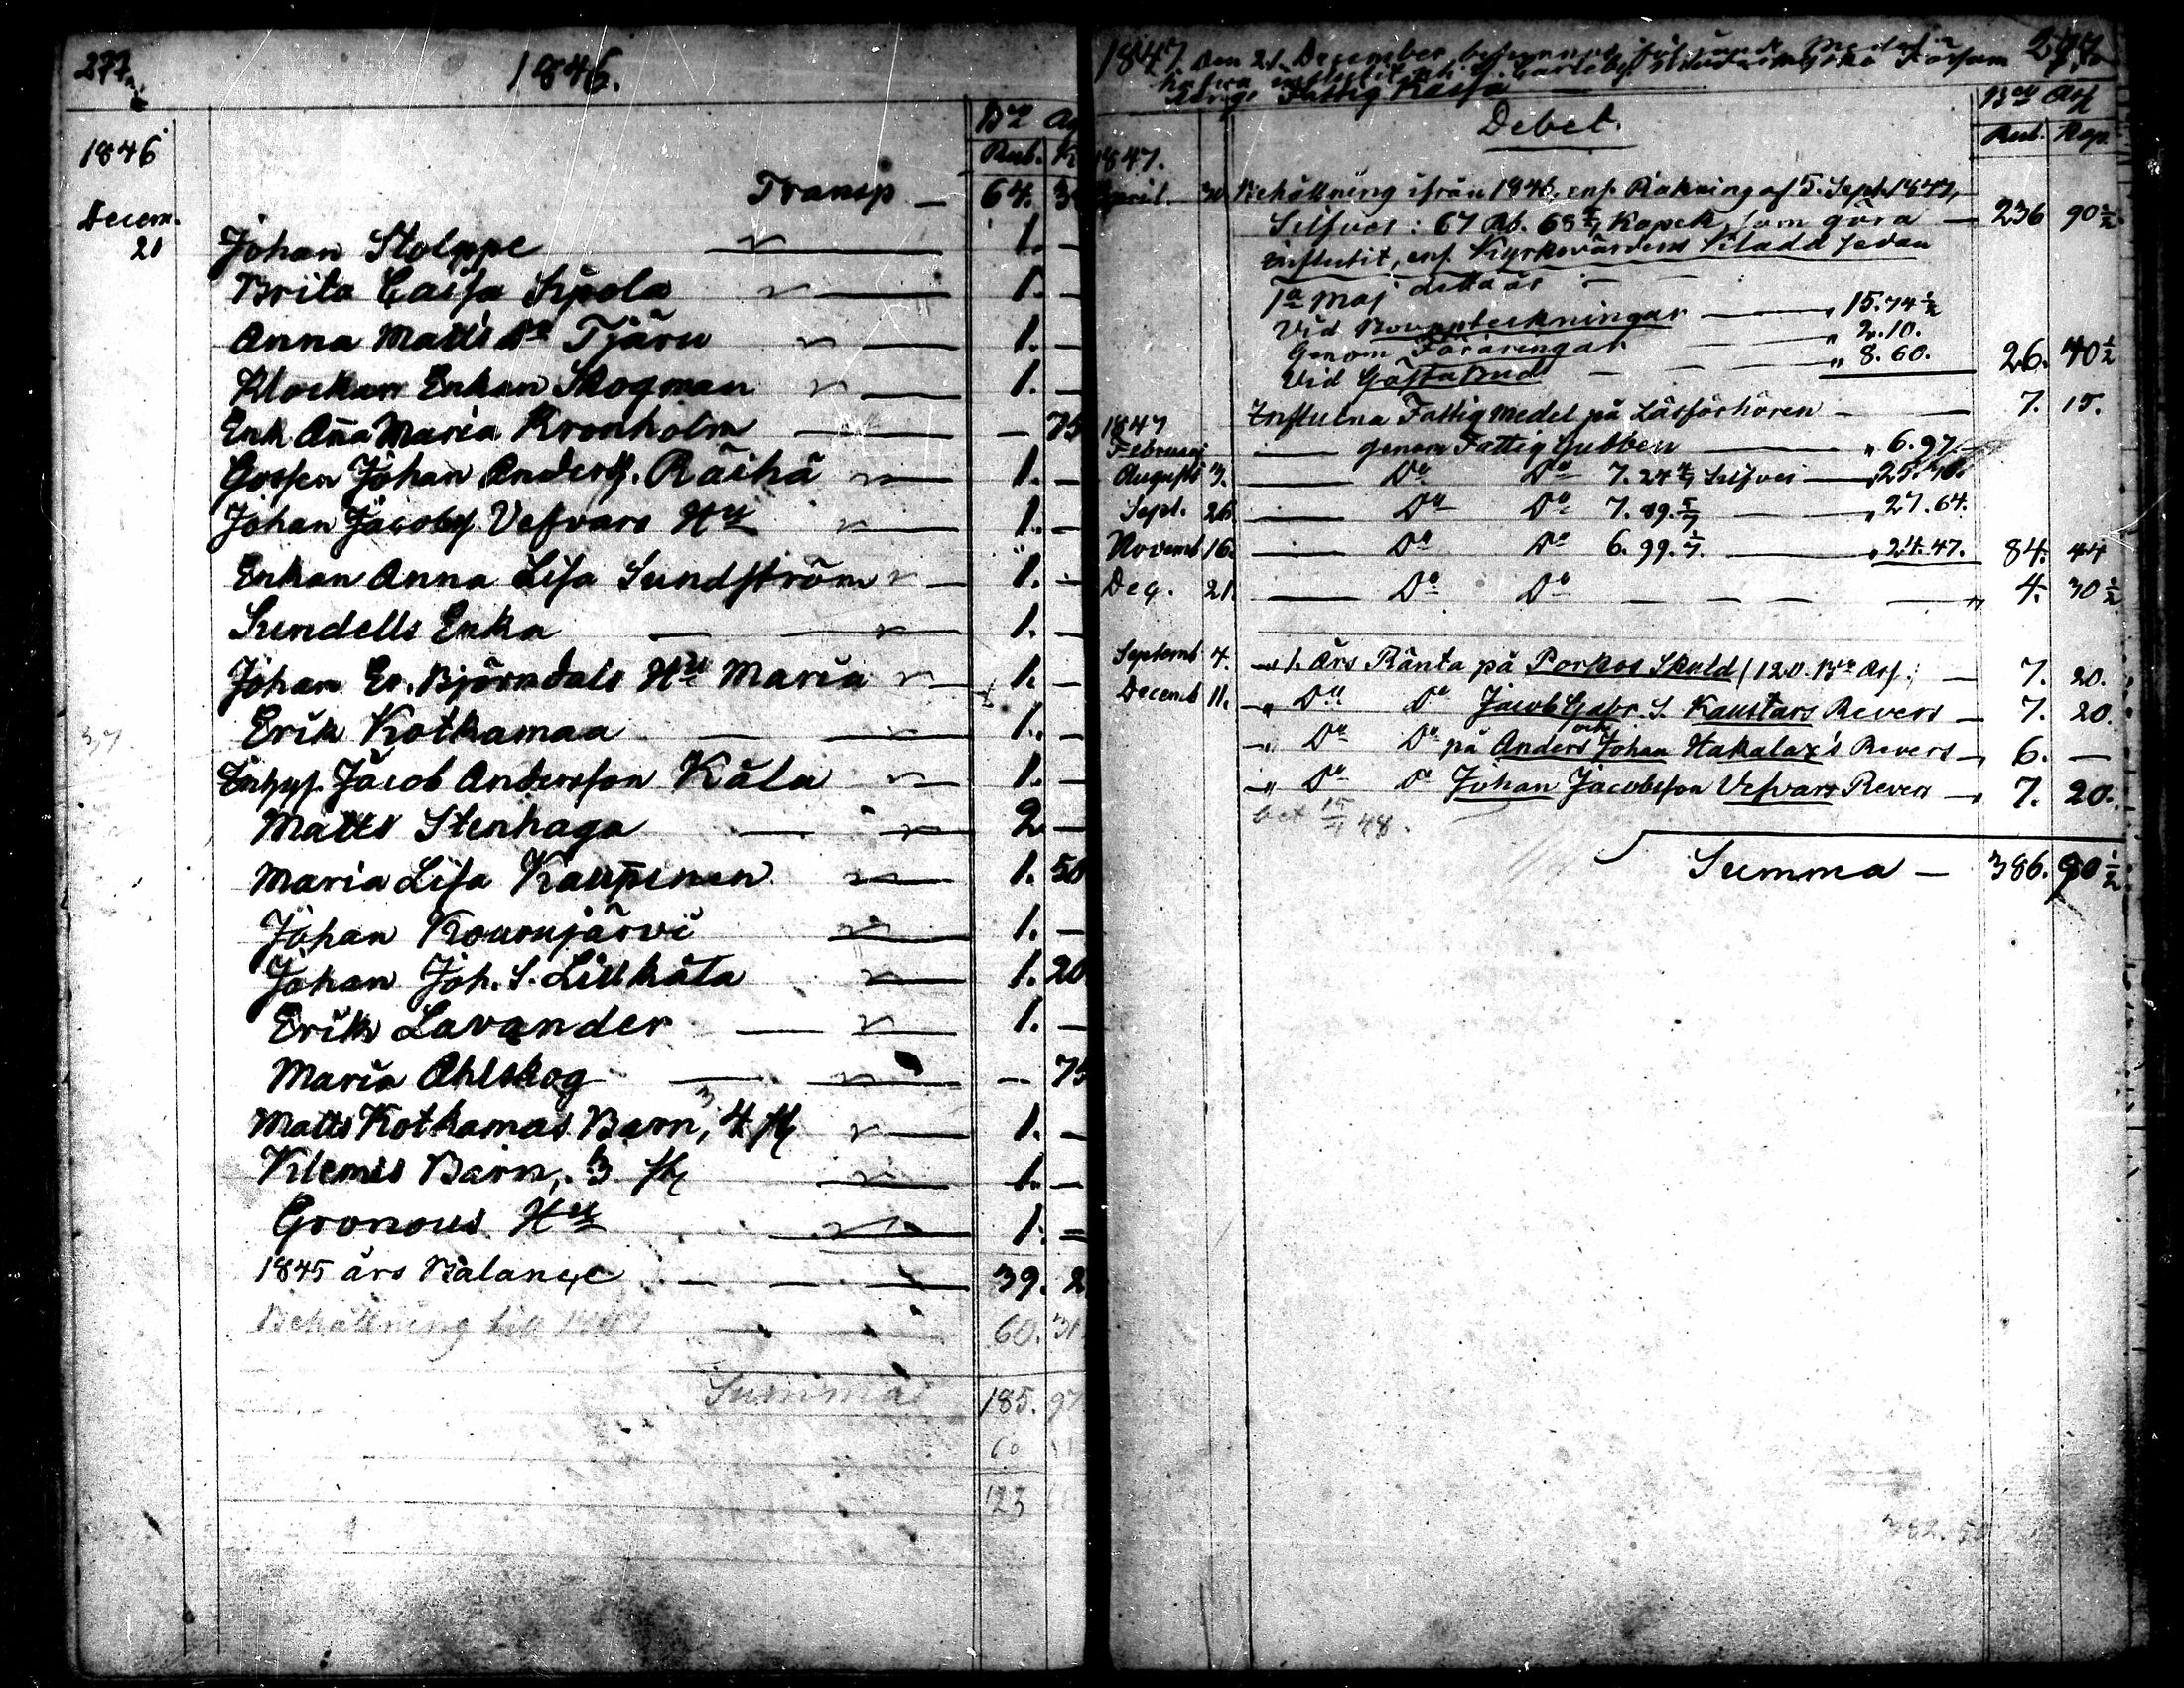 277.
1846.
Bco As
Rub. K
1846
Transp 64.
Decem. 21
Johan Stolppe 1. —
Brita Caisa Sipola 1. —
Anna Matts Dr Tjäru 1. —
Klockar Enkan Skogman 1. —
Enk. Anna Maria Kronholm — 75
Gossen Johan Anderss. Räihä 1. —
Johan Jacobss Vefvars Hu 1. —
Enkan Anna Lisa Sundström 1. —
Sundells Enka 1. —
Johan Er. Björndals Hu Maria 1. —
Erik Kotkamaa 1. —
Inhys. Jacob Andersson Kåla 1. —
Matts Stenhaga 2 —
Maria Lisa Kauppinen 1. 50
Johan Kourujärvi 1. —
Johan Joh. S. Lillkåla 1. 20
Erik Lavander 1. —
Maria Ahlskog — 75
Matts Kotkamas Barn, 4 st 1. —
Klemis Barn, 3 st 1. —
Gronous Hu 1. —
1845 års Balance 39. 2
Behållning till 60. 31
Summa 185. 97
60
123
1847. Den 21 December
Fattig Kassa
277.
Debet.
Bco As
Rub. Kop.
1847.
April. 30 Behållning ifrån 1846, enl. Räkning af 5. Sept. 1847,
Silfver: 67 Rb. 68 4/7 Kopek, som göra — 236 90 1/2
Influtit, enl. Kyrkovärdens sedan
1a Maj detta år
Vid Bouppteckningar — " 15.74 1/2
Genom Föräringar — " 2.10.
Vid Gästabud — " 8.60. 26. 40 1/2
Influtna Fattigmedel på Läsförhören — 7. 15.
1847
Februari — genom Fattig Gubben — " 6.97.
Augusti 3. — Do Do 7.24 4/7 Silfver — " 25.36.
Sept. 26 — Do Do 7.89 5/7 — " 27.64.
Novemb 16. — Do Do 6.99 1/7 — " 24.47. 84. 44
Dec. 21. — Do Do — 4. 30 1/2
Septemb 4. — 1. Års Ränta på Porkos Skuld (120. Bco As) — 7. 20.
Decemb 11. — Do Do Jacob Gabr. S. Kaustars Revers — 7. 20.
— Do Do på Anders och Johan Hakalax's Revers — 6. —
— Do Do Johan Jacobsson Vefvars Revers — 7. 20.
bet 15/4 48.
Summa — 386. 90 1/2